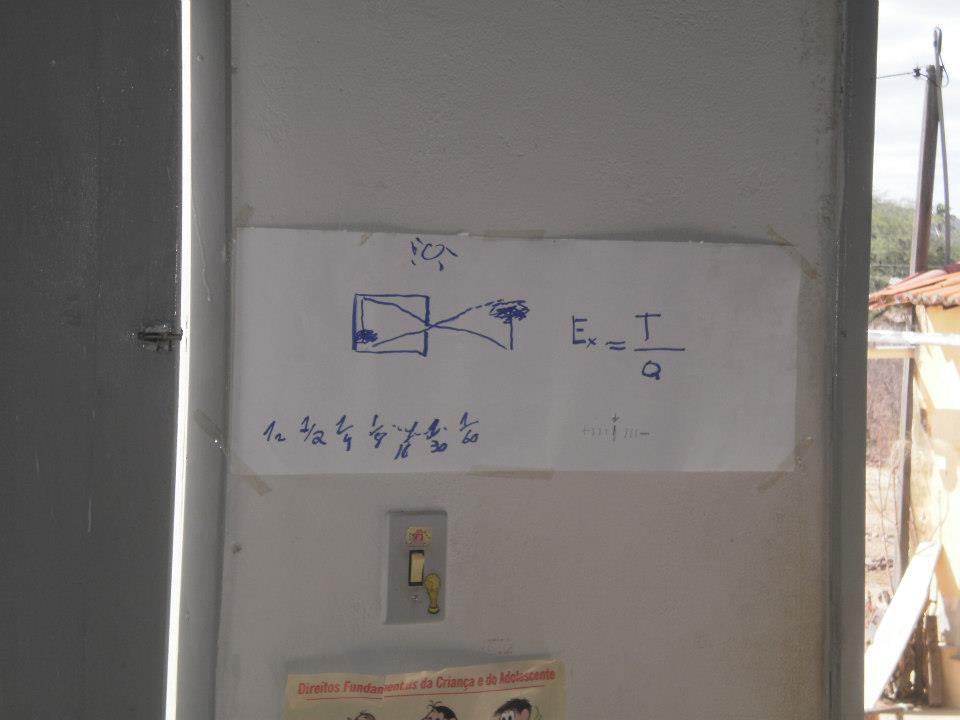 Ex = T
Q
1" 1/2 1/4 1/8 1/16 1/30 1/60
Direitos Fundamentais da Criança e do Adolescente